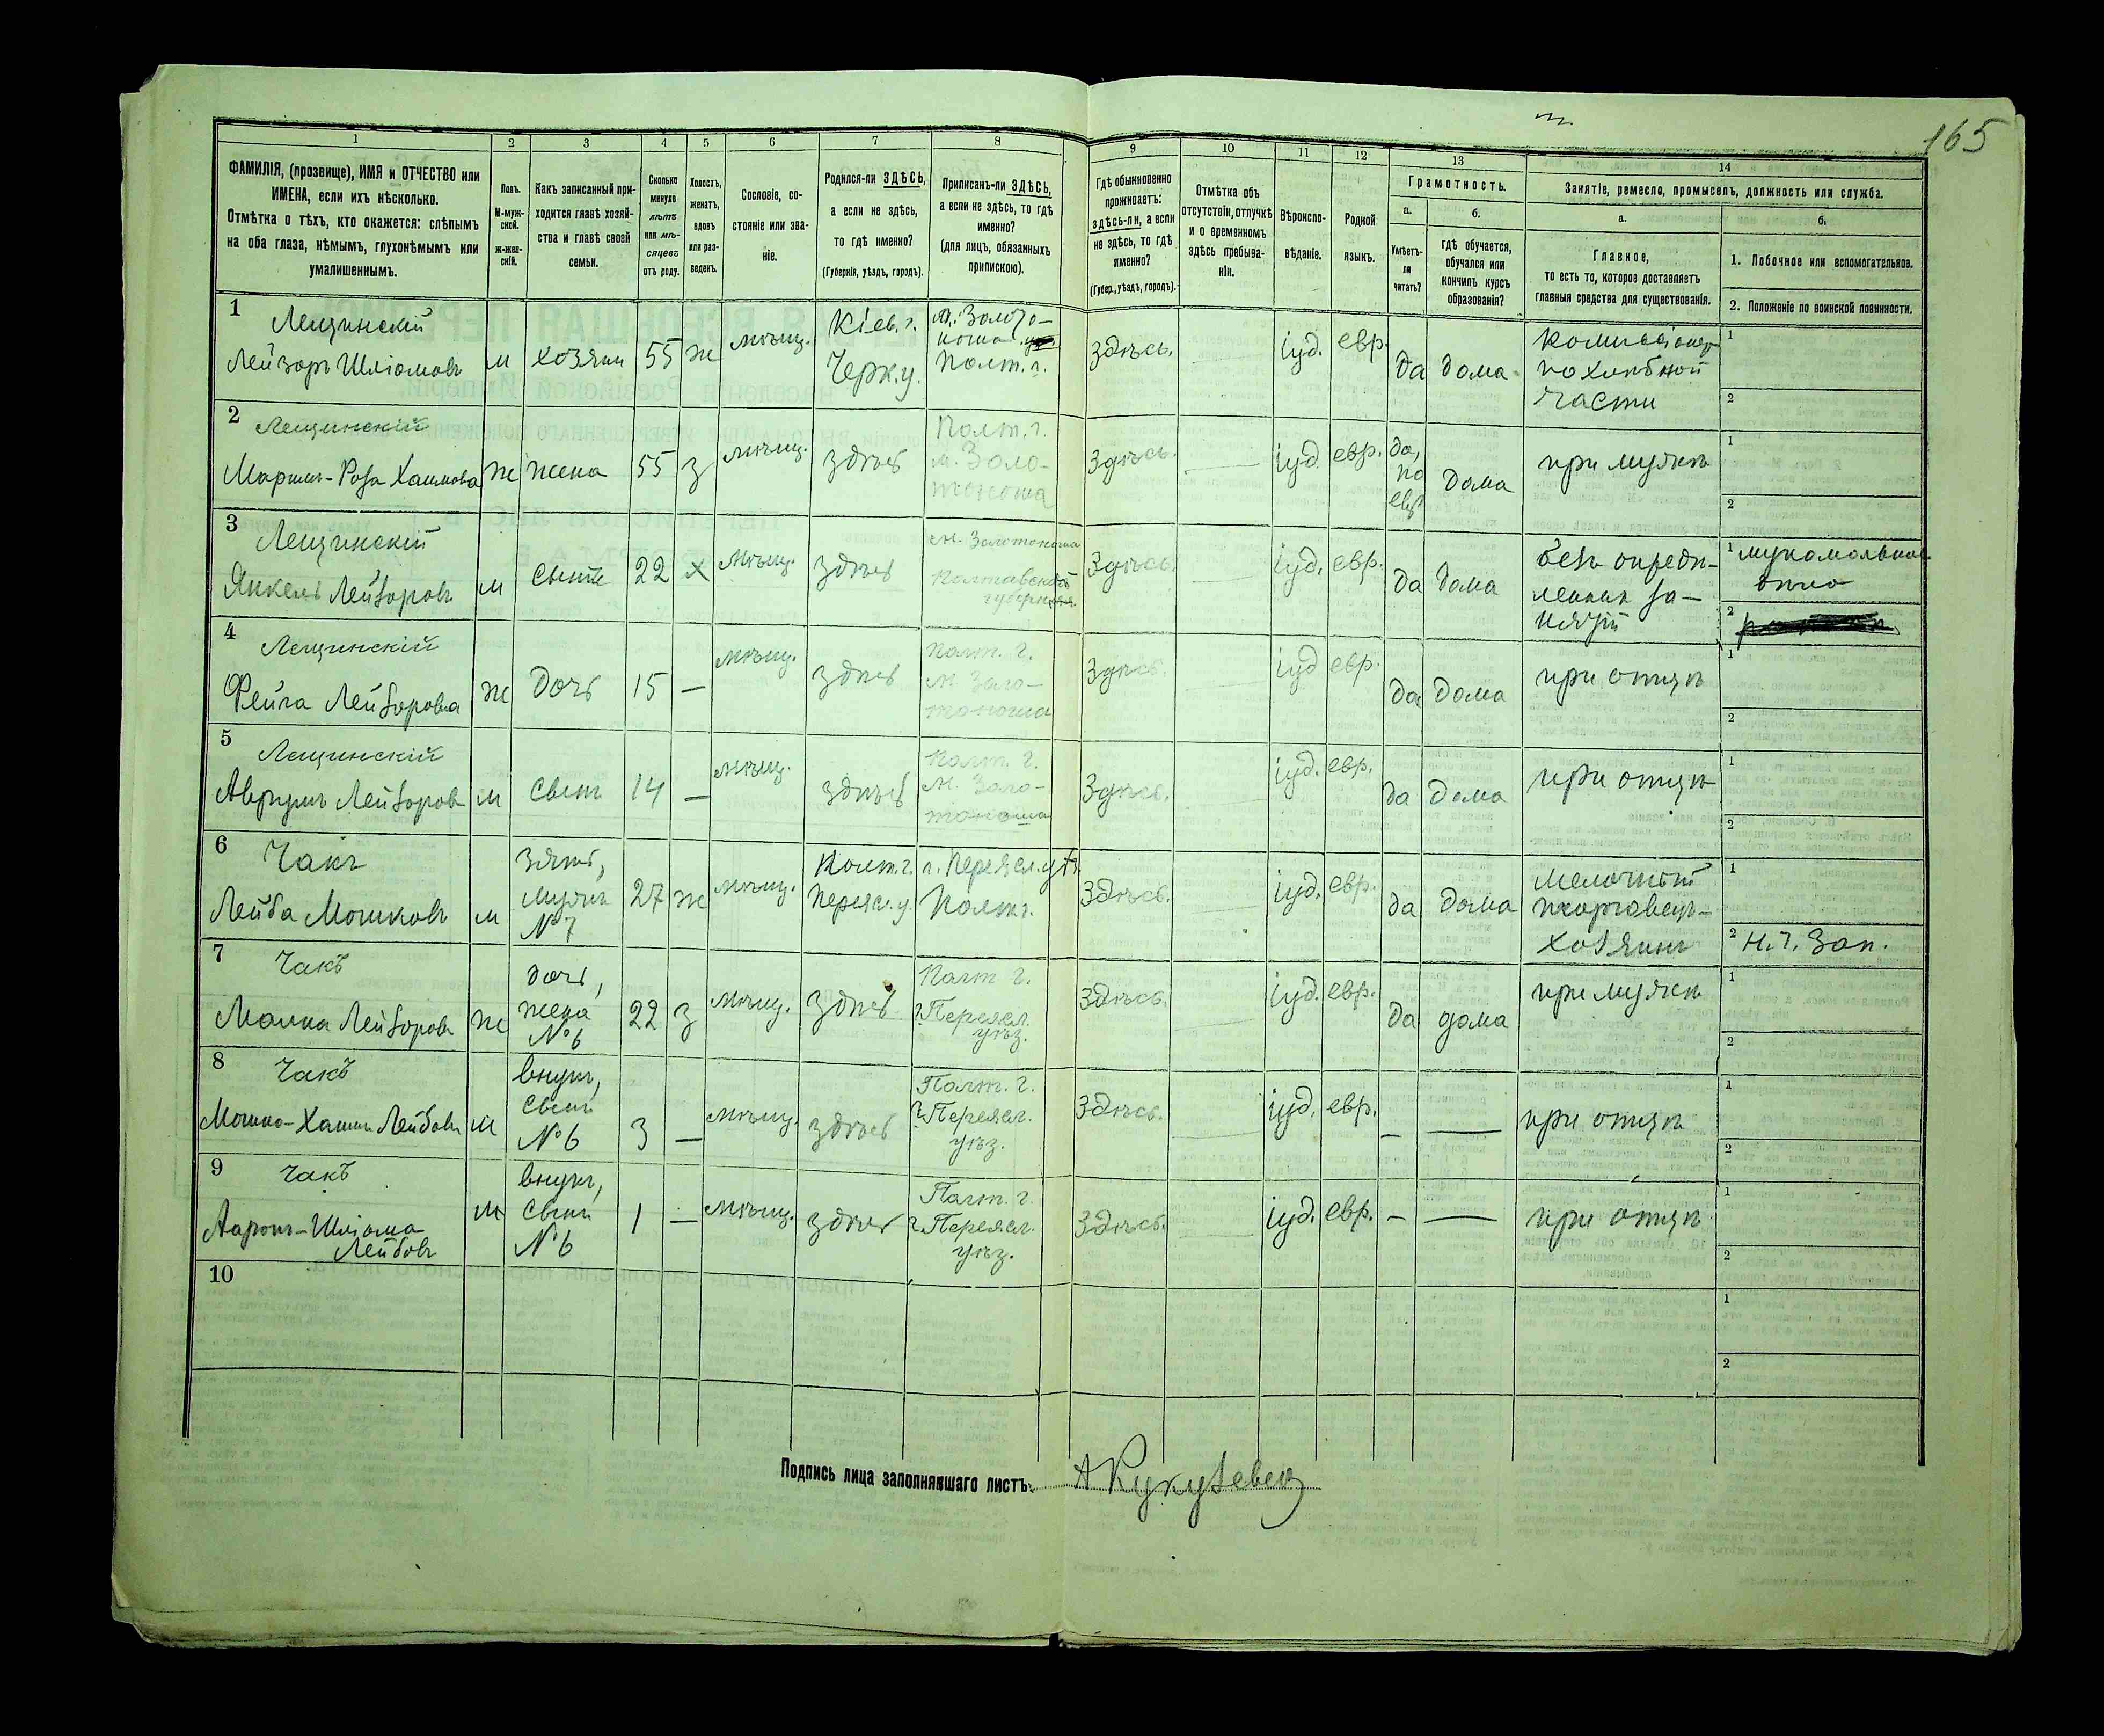 165
1 2 3 4 5 6 7 8 9 10 11 12 13 14
ФАМИЛІЯ, (прозвище), ИМЯ и ОТЧЕСТВО или
ИМЕНА, если ихъ нѣсколько.
Отмѣтка о тѣхъ, кто окажется: слѣпымъ
на оба глаза, нѣмымъ, глухонѣмымъ или
умалишеннымъ.
Полъ.
М-муж-
ской.
ж-жен-
скій.
Какъ записанный при-
ходится главѣ хозяй-
ства и главѣ своей
семьи.
Сколько
минуло
лѣтъ
или мѣ-
сяцевъ
отъ роду.
Холостъ,
женатъ,
вдовъ
или раз-
веденъ.
Сословіе, со-
стояніе или зва-
ніе.
Родился-ли ЗДѢСЬ,
а если не здѣсь,
то гдѣ именно?
(Губернія, уѣздъ, городъ).
Приписанъ-ли ЗДѢСЬ,
а если не здѣсь, то гдѣ
именно?
(для лицъ, обязанныхъ
припискою).
Гдѣ обыкновенно
проживаетъ:
здѣсь-ли, а если
не здѣсь, то гдѣ
именно?
(Губер., уѣздъ, городъ).
Отмѣтка объ
отсутствіи, отлучкѣ
и о временномъ
здѣсь пребыва-
ніи.
Вѣроиспо-
вѣданіе.
Родной
языкъ.
Грамотность.
а.
Умѣетъ-
ли
читать?
б.
гдѣ обучается,
обучался или
кончилъ курсъ
образованія?
Занятіе, ремесло, промыселъ, должность или служба.
а.
Главное,
то есть то, которое доставляетъ
главныя средства для существованія.
б.
1. Побочное или вспомогательное.
2. Положеніе по воинской повинности.
1
Лещинскій
Лейзоръ Шліомовъ
м
хозяин
55
ж
мѣщ.
Кіев. г.
Черк. у.
м. Золото-
ноша
Полт. г.
здѣсь.
іуд.
евр.
да
дома
Комиссіонер
по хлѣбной
части
1
2
2
Лещинскій
Марьямъ-Роза Хаимова
ж
жена
55
з
мѣщ.
здѣсь
Полт. г.
м. Золо-
тоноша
Здѣсь.
іуд.
евр.
да,
по
евр.
дома
при мужѣ
1
2
3
Лещинскій
Янкель Лейзоровъ
м
сынъ
22
х
мѣщ.
здѣсь
м. Золотоноша
Полтавской
губерніи
Здѣсь.
іуд.
евр.
да
дома
безъ опредѣ-
ленных за-
нятій
1 мукомольное
дѣло
2
4
Лещинскій
Фейга Лейзоровна
ж
дочь
15
—
мѣщ.
здѣсь
Полт. г.
м. Золо-
тоноша
Здѣсь.
іуд
евр.
да
дома
при отцѣ
1
2
5
Лещинскій
Аврумъ Лейзоровъ
м
сынъ
14
—
мѣщ.
здѣсь
Полт. г.
м. Золо-
тоноша
Здѣсь.
іуд.
евр.
да
дома
при отцѣ
1
2
6
Чакъ
Лейба Мошковъ
м
зять,
мужъ
№ 7
27
ж
мѣщ.
Полт. г.
Переясл. у.
г. Переясл. уѣз.
Полт г.
Здѣсь.
іуд.
евр.
да
дома
Мелочной
торговецъ-
хозяинъ
1
2 Н. ч. Зап.
7
Чакъ
Малка Лейзоровъ
ж
дочь,
жена
№ 6
22
з
мѣщ.
здѣсь
Полт г.
г. Переясл.
уѣз.
Здѣсь.
іуд.
евр.
да
дома
при мужѣ
1
2
8
Чакъ
Мошко-Хаимъ Лейбовъ
м
внукъ,
сынъ
№ 6
3
—
мѣщ.
здѣсь
Полт. г.
г. Переясл.
уѣз.
Здѣсь.
іуд.
евр.
—
—
при отцѣ
1
2
9
Чакъ
Ааронъ-Шліома
Лейбовъ
м
внукъ,
сынъ
№ 6
1
—
мѣщ.
здѣсь
Полт. г.
г. Переясл.
уѣз.
Здѣсь.
іуд.
евр.
—
—
при отцѣ
1
2
10
1
2
Подпись лица заполнявшаго листъ: